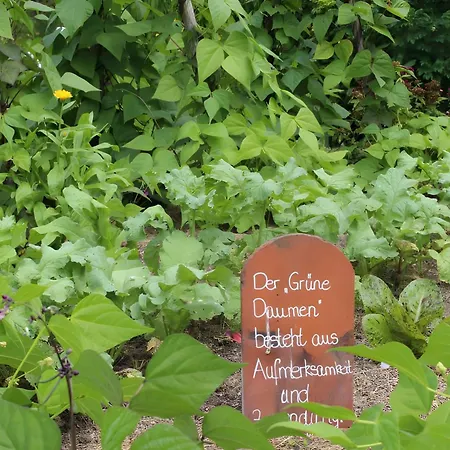 Der „Grüne
Daumen"
besteht aus
Aufmerksamkeit
und